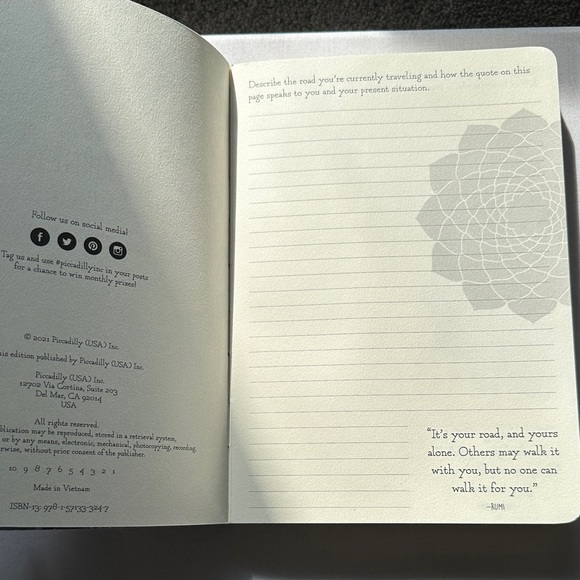 Follow us on social media!
Tag us and use #piccadillyinc in your posts
for a chance to win monthly prizes!
© 2021 Piccadilly (USA) Inc.
edition published by Piccadilly (USA) Inc.
Piccadilly (USA) Inc.
12702 Via Cortina, Suite 203
Del Mar, CA 92014
USA
All rights reserved.
may be reproduced, stored in a retrieval system,
or by any means, electronic, mechanical, photocopying, recording
without prior consent of the publisher.
10 9 8 7 6 5 4 3 2 1
Made in Vietnam
ISBN-13: 978-1-57133-324-7
Describe the road you're currently traveling and how the quote on this
page speaks to you and your present situation.
"It's your road, and yours
alone. Others may walk it
with you, but no one can
walk it for you."
—RUMI